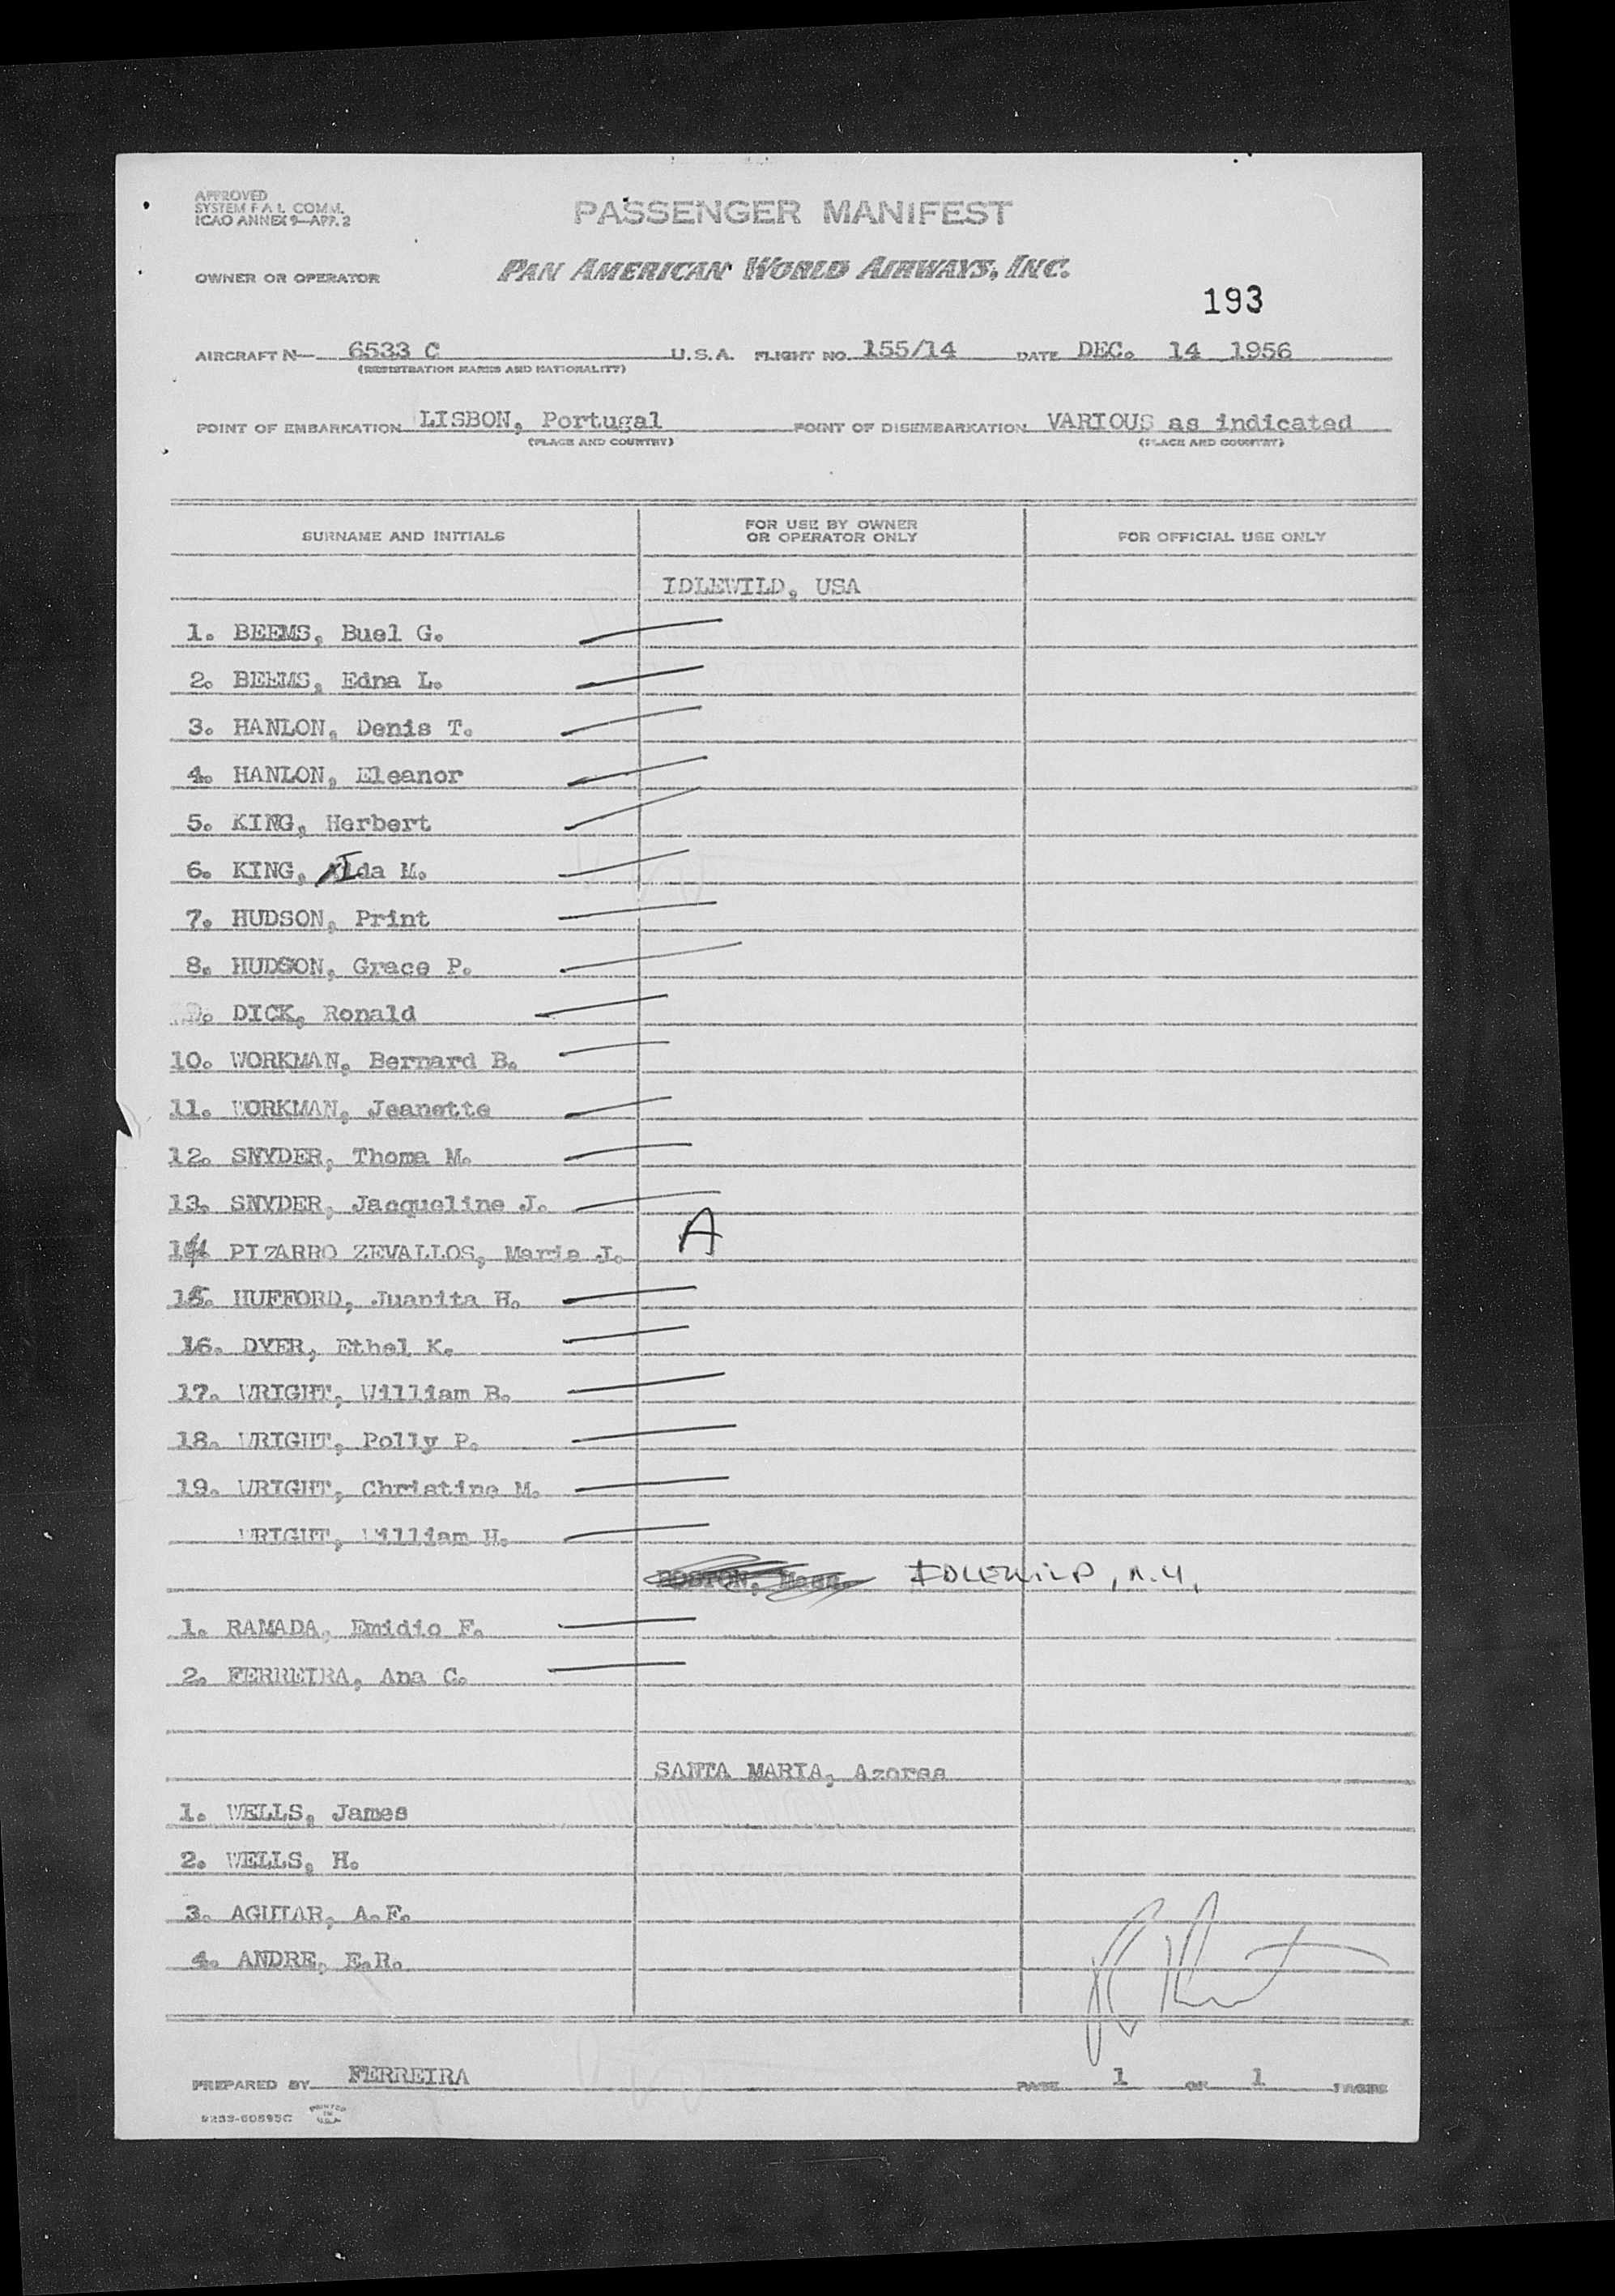 APPROVED
SYSTEM F.A.L. COMM.
ICAO ANNEX 9—APP. 2
PASSENGER MANIFEST
OWNER OR OPERATOR PAN AMERICAN WORLD AIRWAYS, INC.
193
AIRCRAFT N— 6533 C U.S.A. FLIGHT NO. 155/14 DATE DEC. 14 1956
(REGISTRATION MARKS AND NATIONALITY)
POINT OF EMBARKATION LISBON, Portugal POINT OF DISEMBARKATION VARIOUS as indicated
(PLACE AND COUNTRY) (PLACE AND COUNTRY)
SURNAME AND INITIALS FOR USE BY OWNER OR OPERATOR ONLY FOR OFFICIAL USE ONLY
IDLEWILD, USA
1. BEEMS, Buel G.
2. BEEMS, Edna L.
3. HANLON, Denis T.
4. HANLON, Eleanor
5. KING, Herbert
6. KING, Ida M.
7. HUDSON, Print
8. HUDSON, Grace P.
9. DICK, Ronald
10. WORKMAN, Bernard B.
11. WORKMAN, Jeanette
12. SNYDER, Thoma M.
13. SNYDER, Jacqueline J.
14. PIZARRO ZEVALLOS, Maria J. A
15. HUFFORD, Juanita H.
16. DYER, Ethel K.
17. WRIGHT, William B.
18. WRIGHT, Polly P.
19. WRIGHT, Christine M.
WRIGHT, William H.
BOSTON, Mass. IDLEWILD, N.Y.
1. RAMADA, Emidio F.
2. FERREIRA, Ana C.
SANTA MARIA, Azores
1. WELLS, James
2. WELLS, H.
3. AGUIAR, A.F.
4. ANDRE, E.R.
PREPARED BY FERREIRA PAGE 1 OF 1 PAGES
9233-60595C PRINTED IN U.S.A.